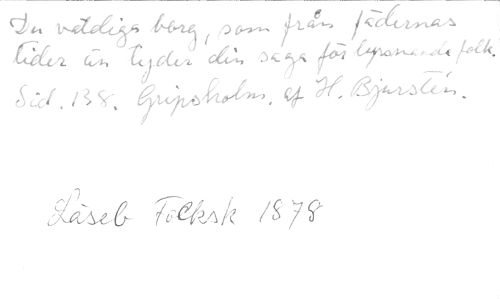 Du väldiga borg, som från fädernas
tider än tyder din saga för lyssnande folk.
Sid. 138. Gripsholm, af H. Bjursten.
Läseb Folksk 1878